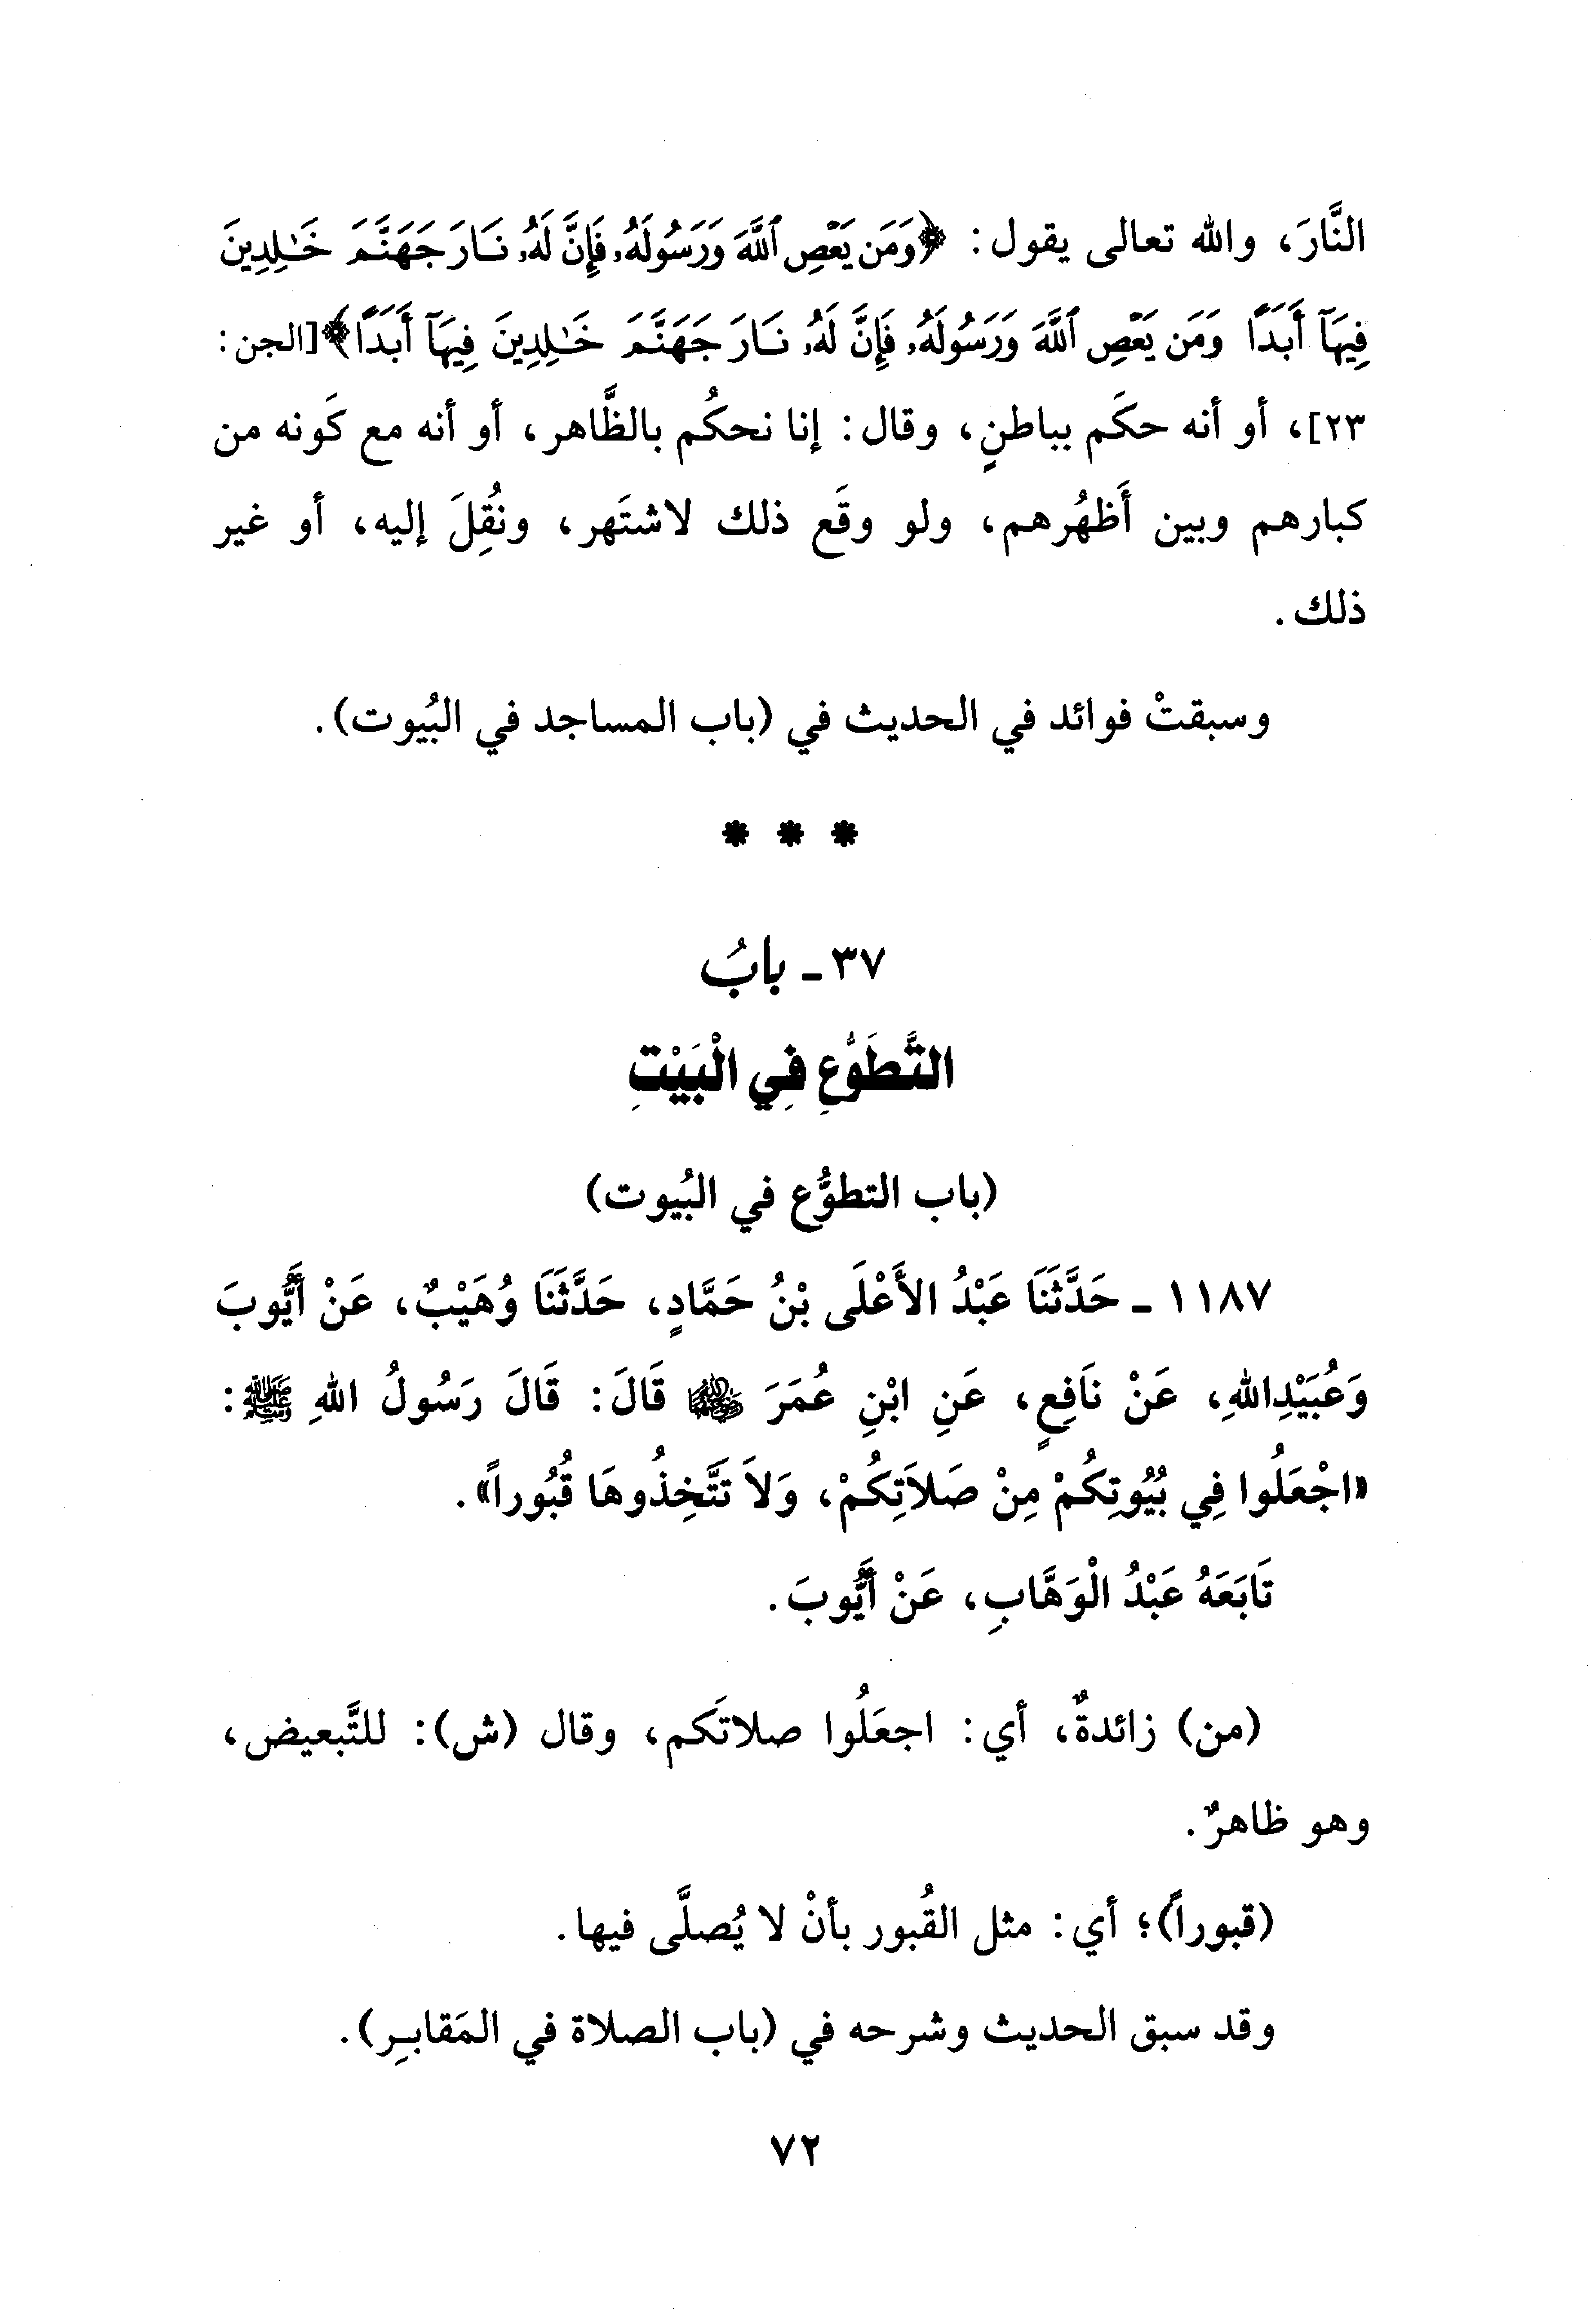 النَّارَ، والله تعالى يقول: ﴿وَمَن يَعْصِ ٱللَّهَ وَرَسُولَهُۥ فَإِنَّ لَهُۥ نَارَ جَهَنَّمَ خَٰلِدِينَ
فِيهَآ أَبَدًا وَمَن يَعْصِ ٱللَّهَ وَرَسُولَهُۥ فَإِنَّ لَهُۥ نَارَ جَهَنَّمَ خَٰلِدِينَ فِيهَآ أَبَدًا﴾[الجن:
٢٣]، أو أنه حكَم بباطنٍ، وقال: إنا نحكُم بالظَّاهر، أو أنه مع كَونه من
كبارهم وبين أَظهُرهم، ولو وقَع ذلك لاشتَهر، ونُقِلَ إليه، أو غير
ذلك.
وسبقتْ فوائد في الحديث في (باب المساجد في البُيوت).
* * *
٣٧ ـ بابُ
التَّطَوُّعِ فِي الْبَيْتِ
(باب التطوُّع في البُيوت)
١١٨٧ ـ حَدَّثَنَا عَبْدُ الأَعْلَى بْنُ حَمَّادٍ، حَدَّثَنَا وُهَيْبٌ، عَنْ أَيُّوبَ
وَعُبَيْدِاللهِ، عَنْ نَافِعٍ، عَنِ ابْنِ عُمَرَ رضي الله عنهما قَالَ: قَالَ رَسُولُ اللهِ ﷺ:
«اجْعَلُوا فِي بُيُوتِكُمْ مِنْ صَلاَتِكُمْ، وَلاَ تَتَّخِذُوهَا قُبُوراً».
تَابَعَهُ عَبْدُ الْوَهَّابِ، عَنْ أَيُّوبَ.
(من) زائدةٌ، أي: اجعَلُوا صلاتَكم، وقال (ش): للتَّبعيض،
وهو ظاهرٌ.
(قبوراً)؛ أي: مثل القُبور بأنْ لا يُصلَّى فيها.
وقد سبق الحديث وشرحه في (باب الصلاة في المَقابِر).
٧٢